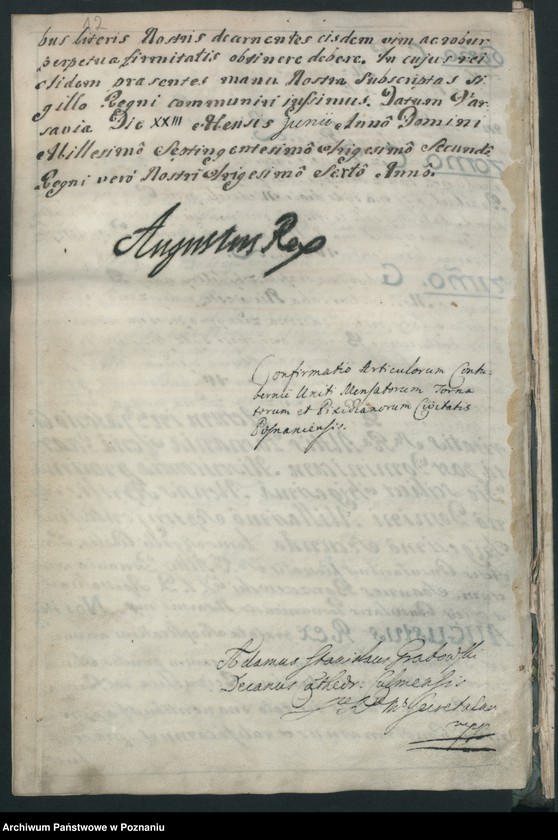 12
bus literis Nostris decernentes eisdem vim ac robur
perpetuæ firmitatis obtinere debere. In cujus rei
fidem præsentes manu Nostra Subscriptas Si-
gillo Regni communiri jussimus. Datum Var-
saviæ Die XXIII Mensis Junii Annô Domini
Millesimô Septingentesimô trigesimô Secundô
Regni verò Nostri trigesimô Sextô Annô.
Augustus Rex
Confirmatio Articulorum Contu-
bernii Uniti Mensatorum Torna
torum et Pixidianorum Civitatis
Posnaniensis.
Adamus Stanislaus Grabowski
Decanus Cathedr: Culmensis
Secretarius
mpp
Archiwum Państwowe w Poznaniu